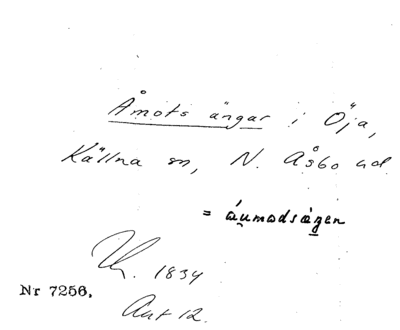 Åmots ängar i Öja,
Källna sn, N. Åsbo hd.
= áu̯modsä̀gen
1834
Nr 7256.
Akt 12.